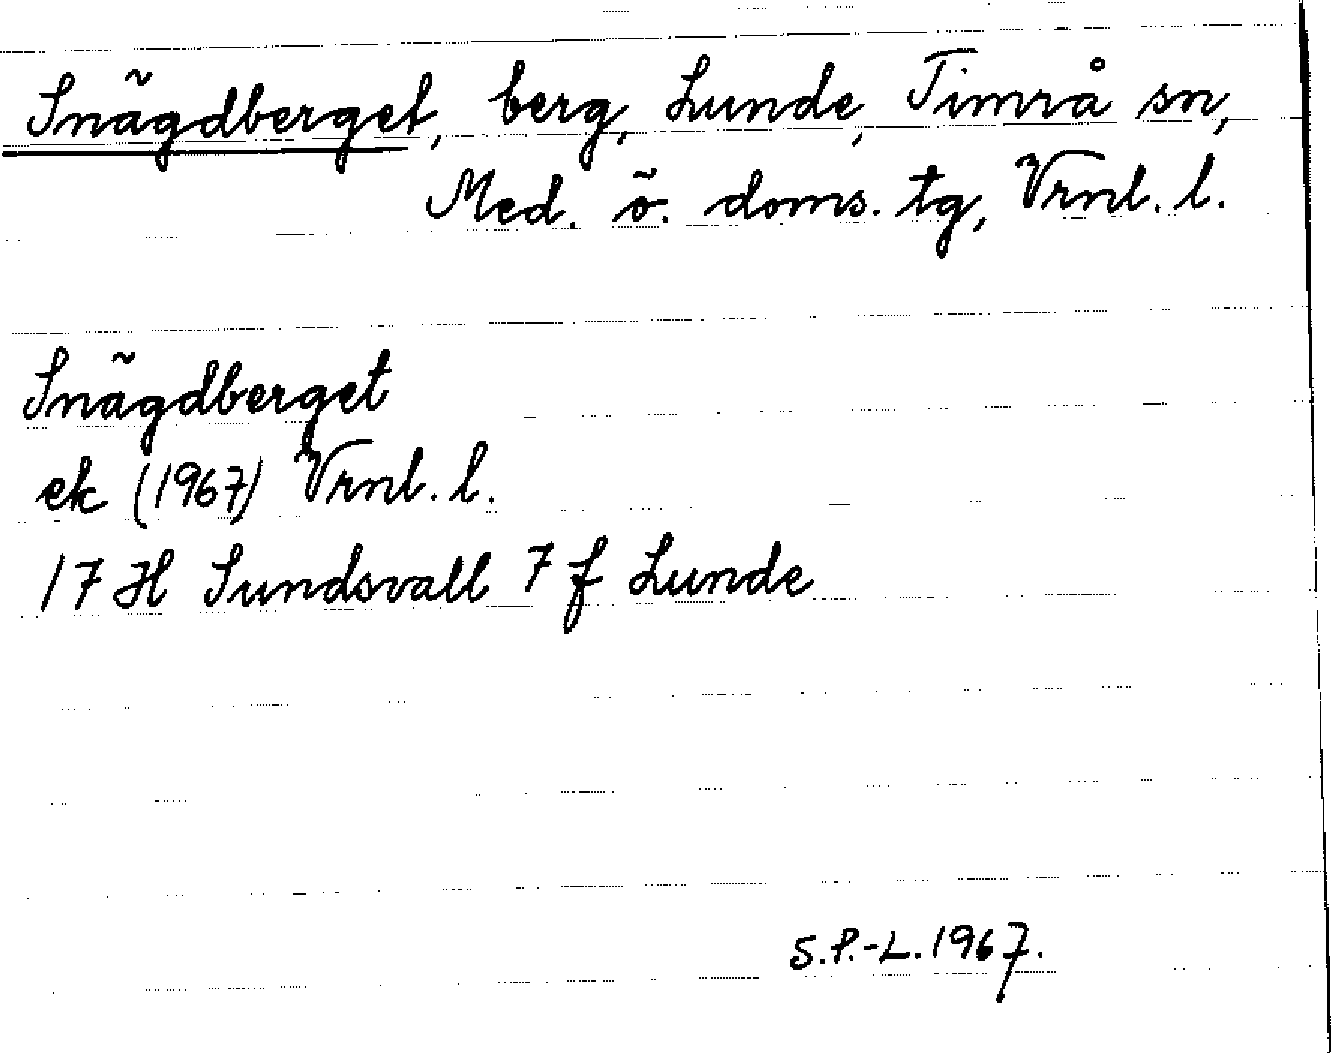 Snägdberget, berg, Lunde, Timrå sn,
Med. ö. doms. tg, Vrnl. l.
Snägdberget
ek (1967) Vrnl. l.
17 H Sundsvall 7 f Lunde
S.P.-L. 1967.